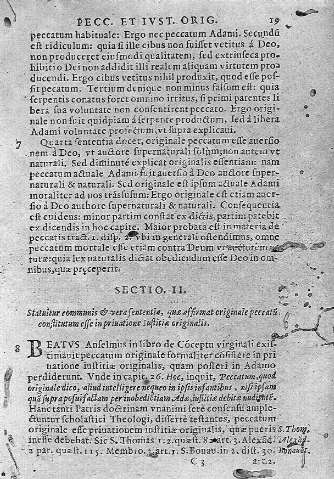 PECC. ET IVST. ORIG. 19
peccatum habituale: Ergo nec peccatum Adami. Secundū
est ridiculum: quia si ille cibus non fuisset vetitus à Deo,
non produceret eiusmodi qualitatem, sed extrinseca pro-
hibitio Dei non addidit illi realem aliquam virtutem pro-
ducendi. Ergo cibus vetitus nihil produxit, quod esse pos-
sit peccatum. Tertium denique non minus falsum est: quia
serpentis conatus foret omnino irritus, si primi parentes li
bera sua voluntate non consensissent peccato. Ergo origi-
nale non fuit quidpiam à serpente productum, sed à libera
Adami voluntate profectum, vt supra explicui.
7 Quarta sententia docet, originale peccatum esse auersio
nem à Deo, vt auctore supernaturali solùm, non autem vt
naturali. Sed diminutè explicat originalis essentiam: nam
peccatum actuale Adami fuit auersio à Deo auctore super-
naturali & naturali. Sed originale est ipsum actuale Adami
moraliter ad nos trāsfusum: Ergo originale est etiam auer-
sio à Deo authore supernaturali & naturali. Consequentia
est euidens: minor partim constat ex dictis, partim patebit
ex dicendis in hoc capite. Maior probata est in materia de
peccatis tract. 1. disp. vbi in generali ostendimus, omne
peccatum mortale esse etiam contra Deum vt auctorem na-
turæ: quia lex naturalis dictat obediendum esse Deo in om-
nibus, quæ præceperit.
SECTIO. II.
Statuitur communis & vera sententia, quæ affirmat originale peccatū
constitutum esse in priuatione iustitiæ originalis.
8 BEATVS Anselmus in libro de Cōceptu virginali exis-
timauit peccatum originale formaliter consistere in pri
uatione iustitiæ originalis, quam posteri in Adamo
perdiderunt. Vnde in cap. 26. Hoc, inquit, Peccatum, quod
originale dico, aliud intelligere nequeo in ipsis infantibus, nisi ipsam
quā supra posui factam per inobedientiam Adæ, iustitiæ debitæ nuditatē.
Hanc tanti Patris doctrinam vnanimi ferè consensu ample-
ctuntur scholastici Theologi, disserte testantes, peccatum
originale esse priuationem iustitiæ originalis, quæ nuaeris S. Thom.
inesse debebat. Sic S. Thomas 1. 2. quæst. 8. art. 3. Alexād. Alexād.
2. par. quæst. 115. Membro 3. art. 1. S. Bonau. in 2. dist. 30. Bonauēt.
C 3